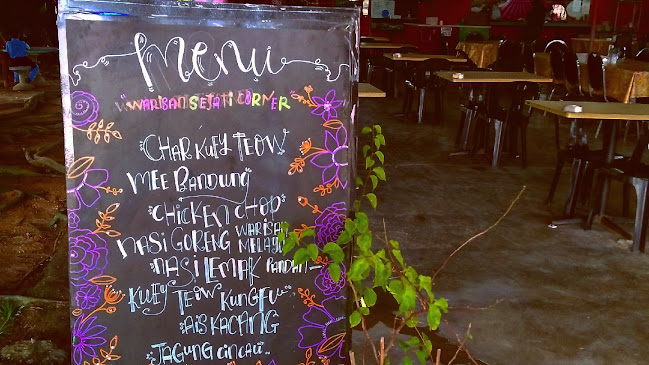 Menu
"WARISAN SEJATI CORNER"
CHAR KUEY TEOW
MEE BANDUNG
CHICKEN CHOP
NASI GORENG WARISAN MELAYU
NASI LEMAK PANDAN
KUEY TEOW KUNGFU..
AIS KACANG
JAGUNG CINCAU..